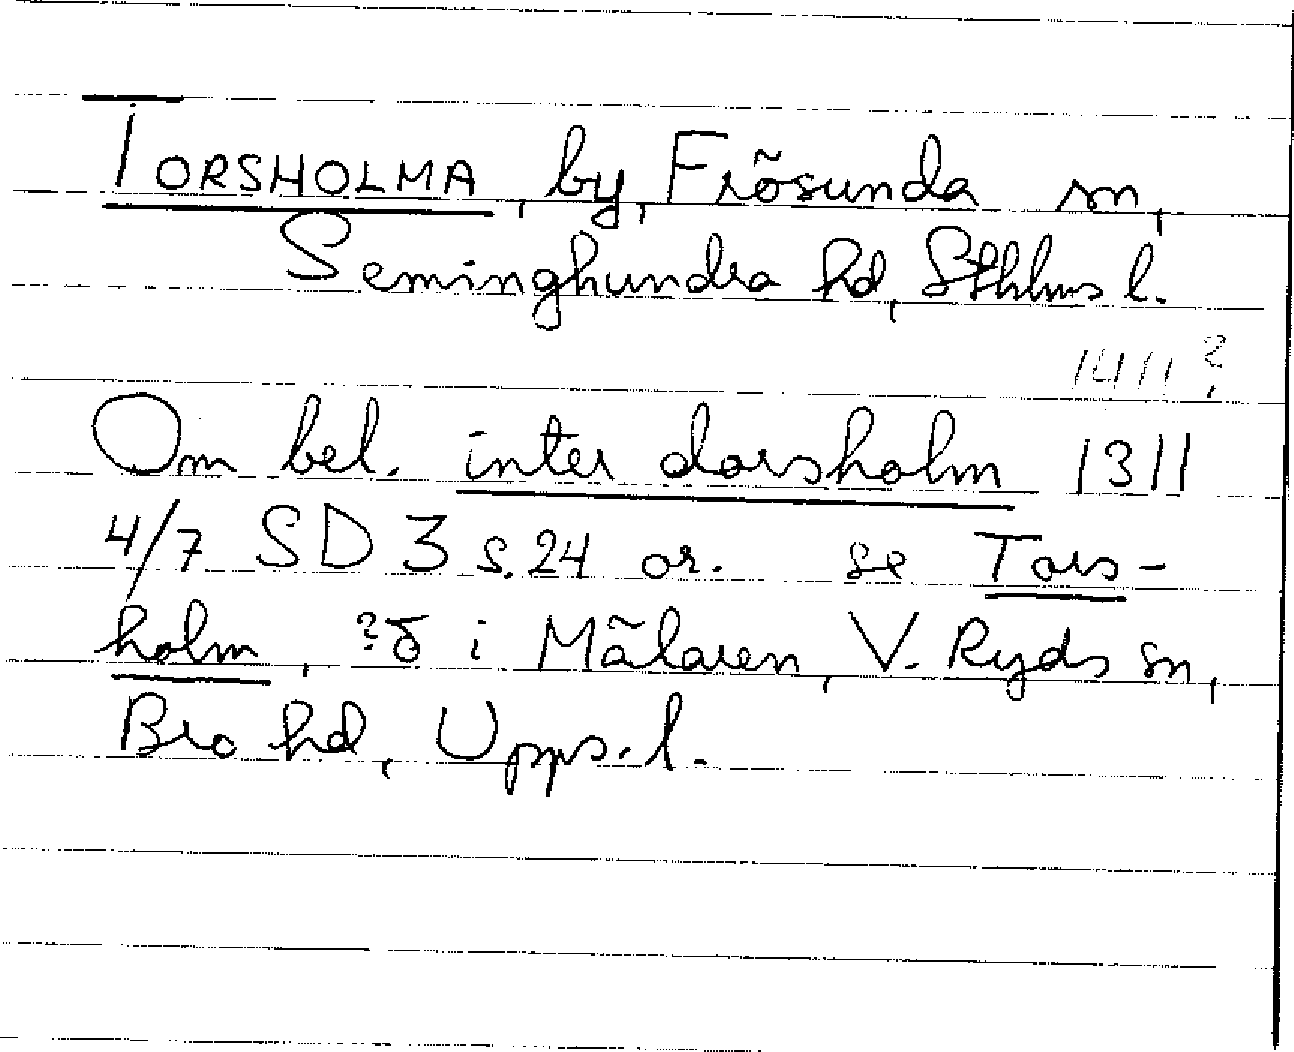 TORSHOLMA, by, Frösunda sn,
Seminghundra hd, Sthlms l.
1411?
Om bel. inter dorsholm 1311
4/7 SD 3 s. 24 or. se Tors-
holm, ?ö i Mälaren, V. Ryds sn,
Bro hd, Upps. l.